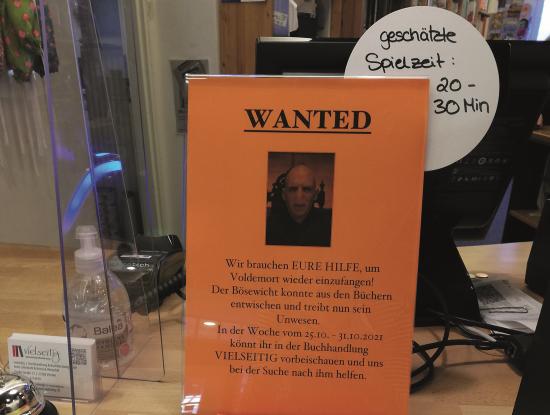 geschätzte
Spielzeit:
20 -
30 Min
WANTED
Wir brauchen EURE HILFE, um
Voldemort wieder einzufangen!
Der Bösewicht konnte aus den Büchern
entwischen und treibt nun sein
Unwesen.
In der Woche vom 25.10. - 31.10.2021
könnt ihr in der Buchhandlung
VIELSEITIG vorbeischauen und uns
bei der Suche nach ihm helfen.
vielseitig